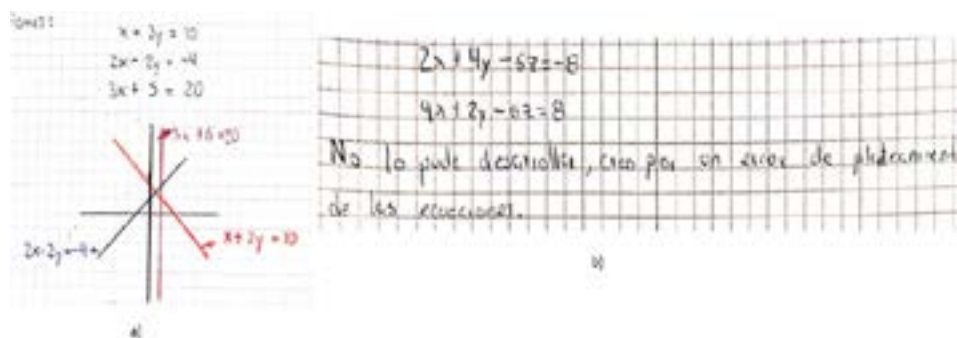 x + 2y = 10
2x - 2y = -4
3x + 5 = 20
2x - 2y = -4
x + 2y = 10
a)
2x + 4y - 5z = -8
4x + 2y - 6z = 8
No lo pude desarrollar, creo por un error de planteamient
de las ecuaciones.
b)